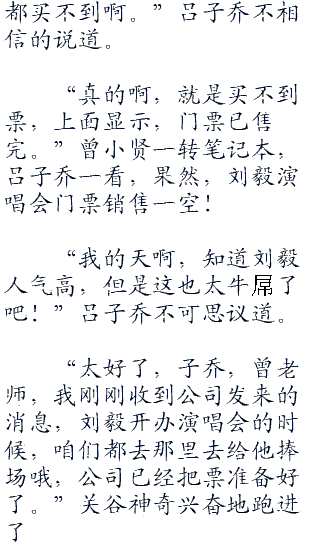 都买不到啊。”吕子乔不相
信的说道。
“真的啊，就是买不到
票，上面显示，门票已售
完。”曾小贤一转笔记本，
吕子乔一看，果然，刘毅演
唱会门票销售一空！
“我的天啊，知道刘毅
人气高，但是这也太牛屌了
吧！”吕子乔不可思议道。
“太好了，子乔，曾老
师，我刚刚收到公司发来的
消息，刘毅开办演唱会的时
候，咱们都去那里去给他捧
场哦，公司已经把票准备好
了。”关谷神奇兴奋地跑进
了